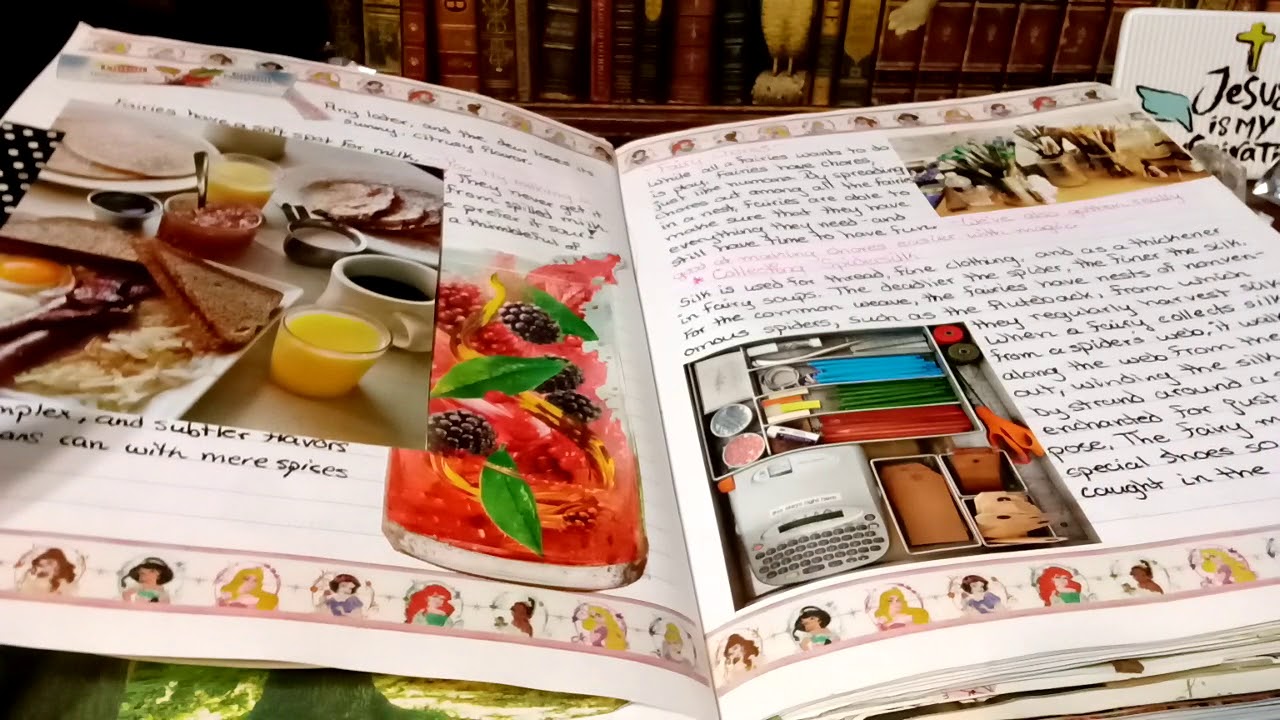 Fairies have a soft spot for milk
Any later, and the dew loses its
sunny, citrusy flavor.
They never get it
from spilled
prefer it
a thimbleful of
mplex, and subtler flavors
ans can with mere spices
While all a fairies wants to do
is play, fairies have chores,
just like humans. By spreading
chores out among all the fairies
in a nest, fairies are able to
make sure that they have
everything they need-and
still have time to have fun. We've also gotten really
good at making chores easier with magic.
Collecting Spidersilk
Silk is used for thread, fine clothing, and as a thickener
in fairy soups. The deadlier the spider, the finer the silk.
For the common weave, the fairies have nests of nonven-
omous spiders, such as the fluteback, from which
they regularly harvest silk
When a fairy collects silk
from a spiders web, it walk
along the web from the
out, winding the silk
by strand around a
enchanted for just
pose. The fairy m
special shoes so
caught in the
JESUS
IS MY